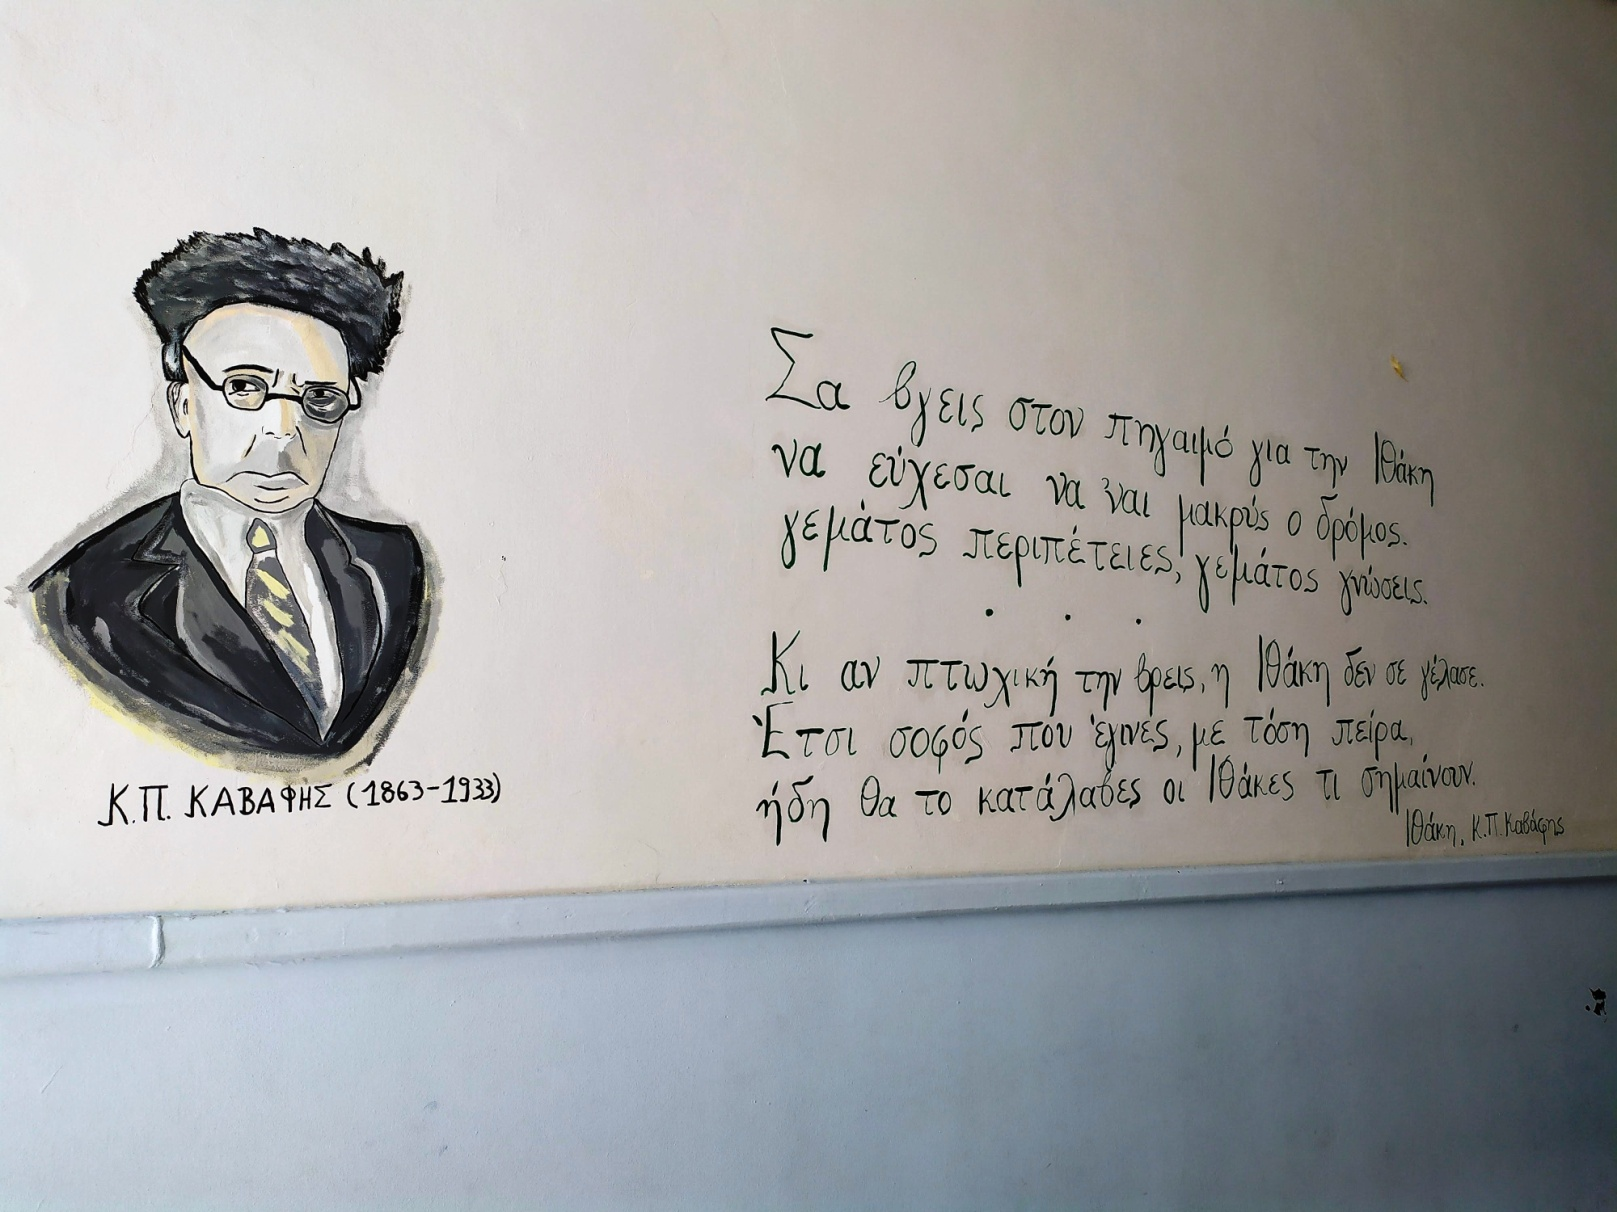 Κ.Π. ΚΑΒΑΦΗΣ (1863-1933)
Σα βγεις στον πηγαιμό για την Ιθάκη
να εύχεσαι να 'ναι μακρύς ο δρόμος.
γεμάτος περιπέτειες, γεμάτος γνώσεις.
. . .
Κι αν πτωχική την βρεις, η Ιθάκη δεν σε γέλασε.
Έτσι σοφός που έγινες, με τόση πείρα,
ήδη θα το κατάλαβες οι Ιθάκες τι σημαίνουν.
Ιθάκη, Κ.Π. Καβάφης